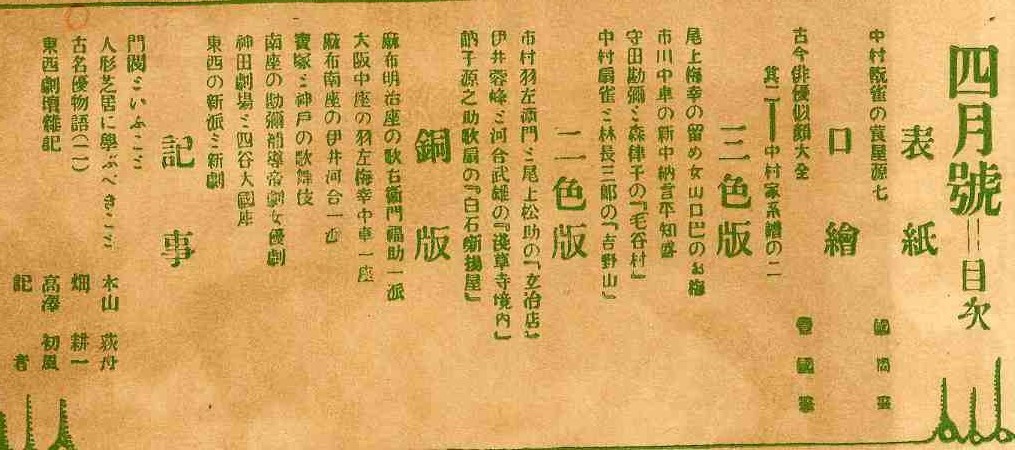 四月號＝目次
表紙
中村翫雀の賞屋源七
口繪
古今俳優似顔大全
其二――中村家系譜の二
三色版
尾上梅幸の留め女山口巴のお梅
市川中車の新中納言平知盛
守田勘彌ミ森律子の『毛谷村』
中村扇雀ミ林長三郎の『吉野山』
二色版
市村羽左衞門ミ尾上松助の『玄冶店』
伊井蓉峰ミ河合武雄の『淺草寺境內』
訥子源之助歌扇の『白石噺揚屋』
銅版
麻布明治座の歌右衞門福助一派
大阪中座の羽左梅幸中車一座
麻布南座の伊井河合一派
寶塚ミ神戸の歌舞伎
南座の勘彌補導帝劇女優劇
神田劇場ミ四谷大國座
東西の新派ミ新劇
記事
門閥ミいふこミ
人形芝居に學ぶべきこミ 木山荻舟
古名優物語(二) 畑耕一
東西劇壇雜記 高澤初風
記者